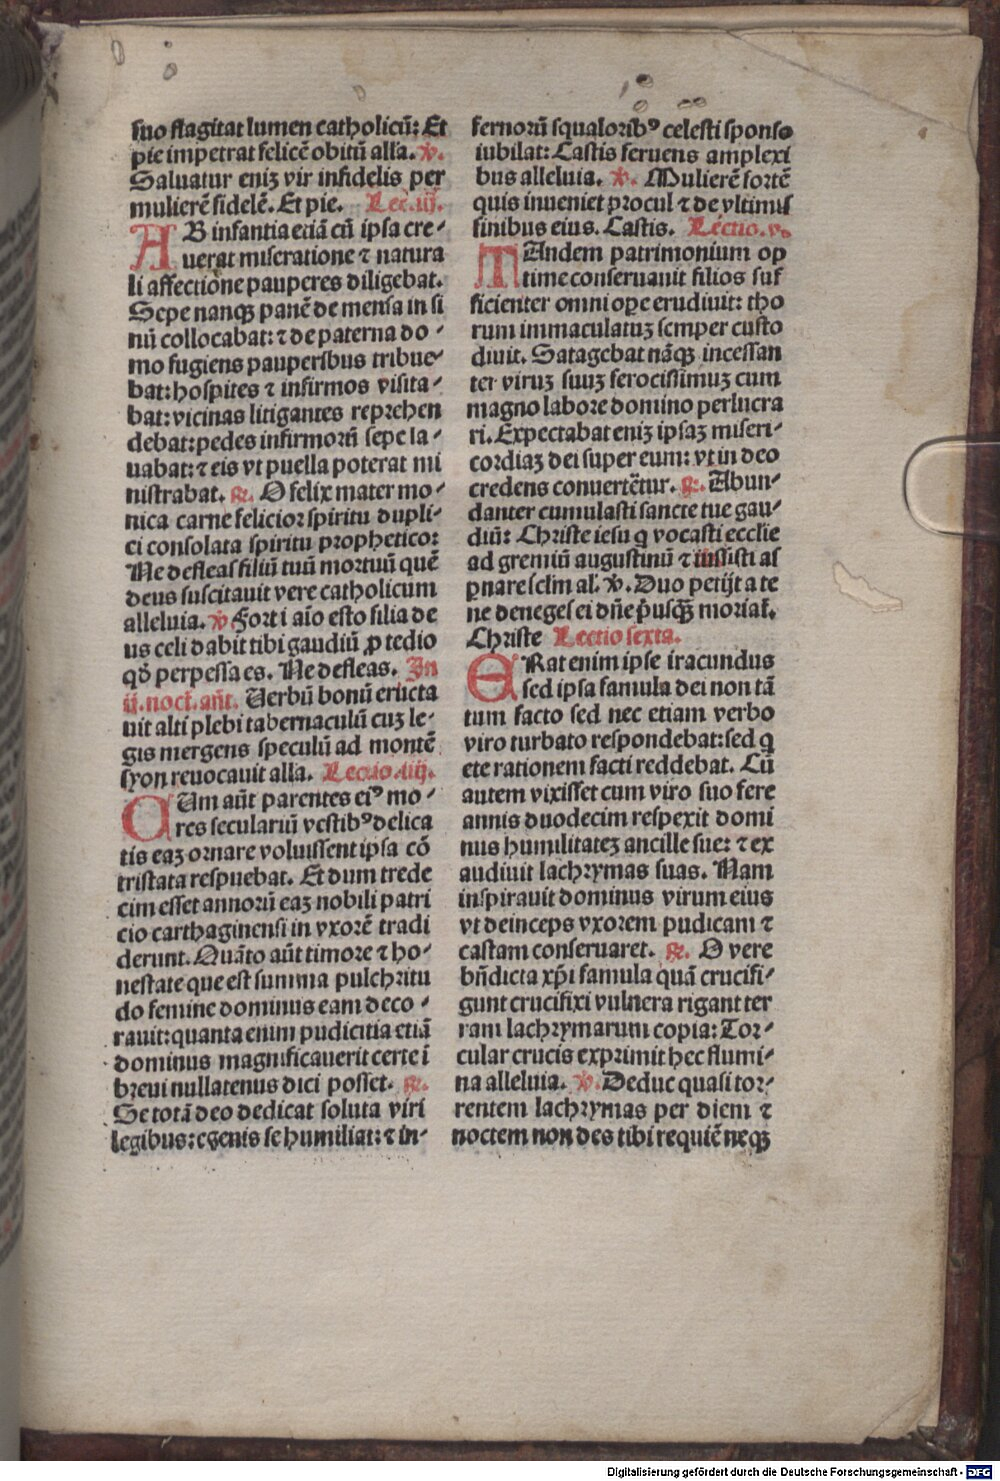 suo flagitat lumen catholicū: Et
pie impetrat felicē obitū alľa. ℣.
Saluatur eniꝫ vir infidelis per
mulierē fidelē. Et pie. Lec̄. iij.
AB infantia etiā cū ipsa cre⸗
uerat miseratione ⁊ natura
li affectione pauperes diligebat.
Sepe nanqꝫ panē de mensa in si
nū collocabat: ⁊ de paterna do⸗
mo fugiens pauperibus tribue⸗
bat: hospites ⁊ infirmos visita⸗
bat: vicinas litigantes reprehen
debat: pedes infirmorū sepe la⸗
uabat: ⁊ eis vt puella poterat mi
nistrabat. ℟. O felix mater mo⸗
nica carne felicior spiritu dupli⸗
ci consolata spiritu prophetico:
Ne defleas filiū tuū mortuū quē
deus suscitauit vere catholicum
alleluia. ℣ Forti aīo esto filia de
us celi dabit tibi gaudiū ꝓ tedio
qď perpessa es. Ne defleas. In
ij. noct̄. añt. Uerbū bonū eructa
uit alti plebi tabernaculū cuꝫ le⸗
gis mergens speculū ad montē
syon reuocauit alla. Lectio. iiij.
CUm aūt parentes eiꝰ mo⸗
res seculariū vestibꝰ delica
tis eaꝫ ornare voluissent ipsa cō
tristata respuebat. Et dum trede
cim esset annorū eaꝫ nobili patri
cio carthaginensi in vxorē tradi
derunt. Quāto aūt timore ⁊ ho⸗
nestate que est summa pulchritu
do femine dominus eam deco⸗
rauit: quanta enim pudicitia etiā
dominus magnificauerit certe ī
breui nullatenus dici posset. ℟.
Se totā deo dedicat soluta viri
legibus: egenis se humiliat: ⁊ in⸗
fernorū squaloribꝰ celesti sponso
iubilat: Castis feruens amplexi
bus alleluia. ℣. Mulierē fortē
quis inueniet procul ⁊ de vltimis
finibus eius. Castis. Lectio. v.
TAndem patrimonium op
time conseruauit filios suf
ficienter omni oꝑe erudiuit: tho
rum immaculatuꝫ semper custo
diuit. Satagebat nāqꝫ incessan
ter viruꝫ suuꝫ ferocissimuꝫ cum
magno labore domino perlucra
ri. Expectabat eniꝫ ipsaꝫ miseri⸗
cordiaꝫ dei super eum: vt in deo
credens conuertētur. ℟. Abun⸗
danter cumulasti sancte tue gau⸗
diū: Christe iesu q̄ vocasti ecclie
ad gremiū augustinū ⁊ iussisti as
ꝑnare sclm al. ℣. Duo petijt a te
ne deneges ei dñe p̄usqꝫ moriat̄.
Christe Lectio sexta.
ERat enim ipse iracundus
sed ipsa famula dei non tā
tum facto sed nec etiam verbo
viro turbato respondebat: sed q̄
ete rationem facti reddebat. Cū
autem vixisset cum viro suo fere
annis duodecim respexit domi
nus humilitateꝫ ancille sue: ⁊ ex
audiuit lachrymas suas. Nam
inspirauit dominus virum eius
vt deinceps vxorem pudicam ⁊
castam conseruaret. ℟. O vere
bn̄dicta xp̄i famula quā crucifi⸗
gunt crucifixi vulnera rigant ter
ram lachrymarum copia: Tor⸗
cular crucis exprimit hec flumi⸗
na alleluia. ℣. Deduc quasi tor⸗
rentem lachrymas per diem ⁊
noctem non des tibi requiē neqꝫ
Digitalisierung gefördert durch die Deutsche Forschungsgemeinschaft - DFG